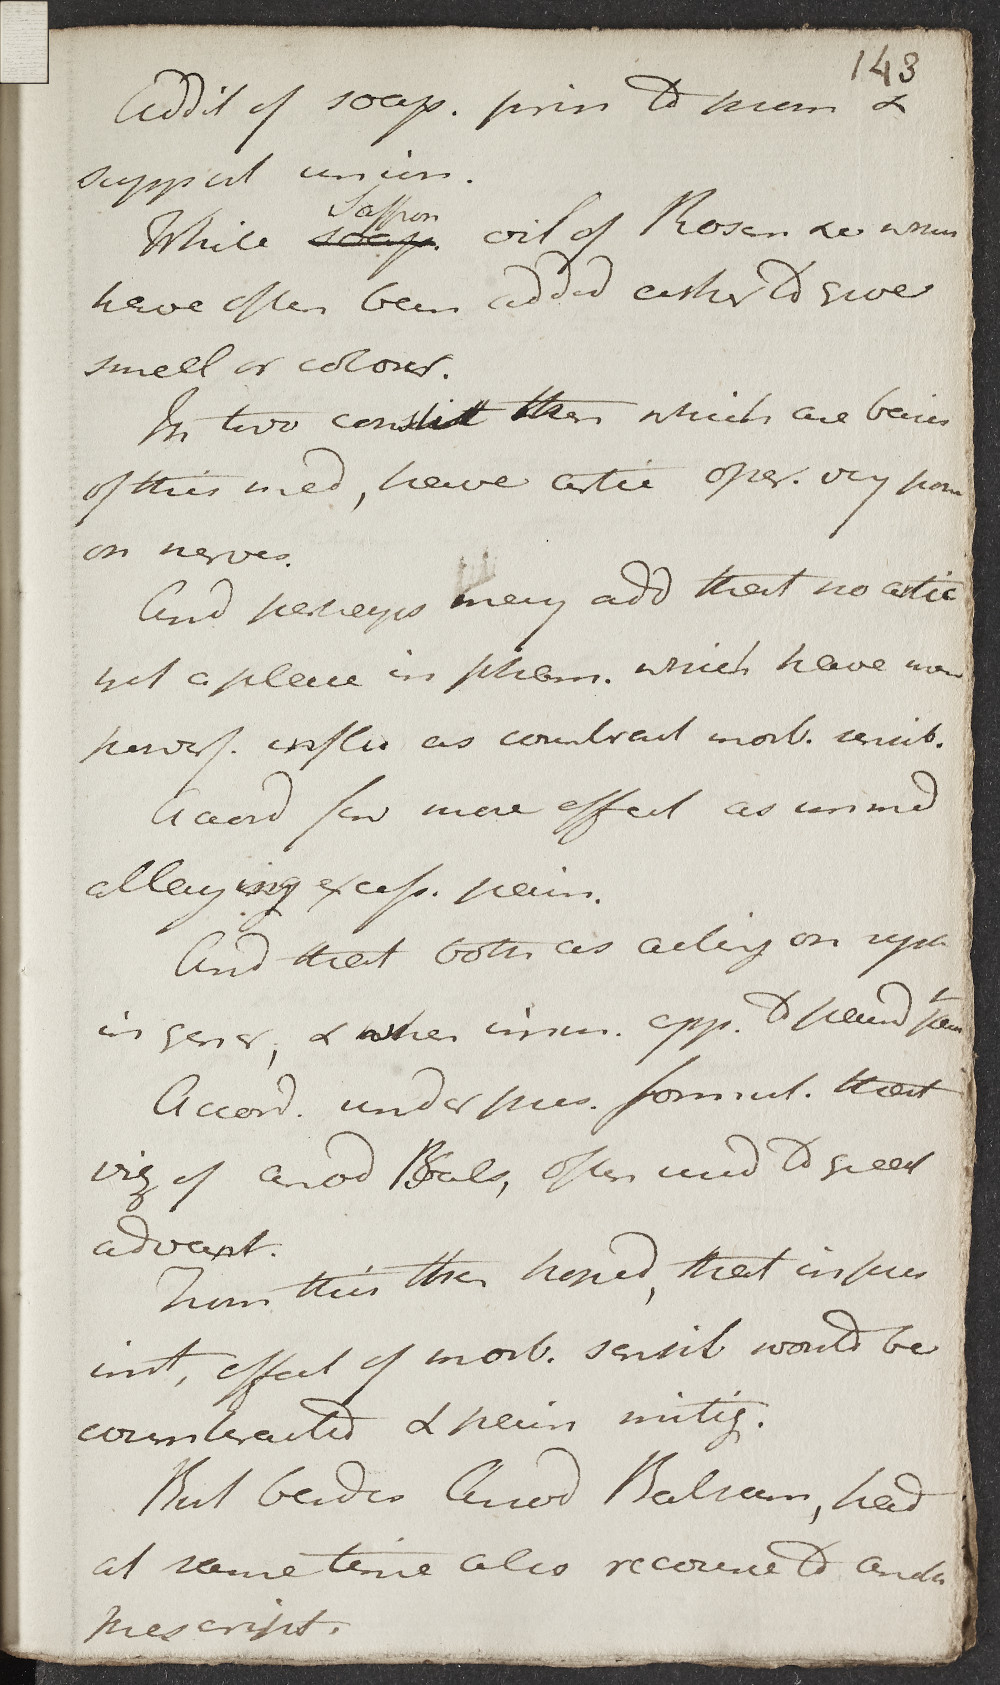 143
Addit of soap. prin to prom &
support union.
Saffron
While soap. oil of Rosem &c when
have often been added either to give
smell or colour.
In two constit then which are basis
of this med, have artic oper. very pow
on nerves.
And perhaps may add that no artic
yet a place in pharm. which have more
powerf. influ as counteract morb. sensib.
Accord few more effect as
allaying excess. pain.
And that both as acting on syst
in gener, & when imm. app. to pained part
Accord. under pres. formul. that
viz of anod Bals, often used to great
advant.
From this then hoped, that in pres
inst, effect of morb. sensib would be
counteracted & pain mitig.
But besides Anod Balsam, had
at same time also recourse to anoth
prescript.